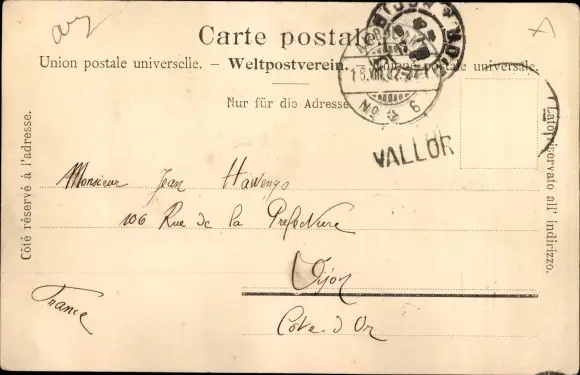 Carte postale
Union postale universelle. – Weltpostverein. – Unione postale universale.
Nur für die Adresse
Côté réservé à l'adresse.
Lato riservato all' indirizzo.
VALLOR
Monsieur Jean
106 Rue de la Prefecture
Dijon
Cote-d'Or
France